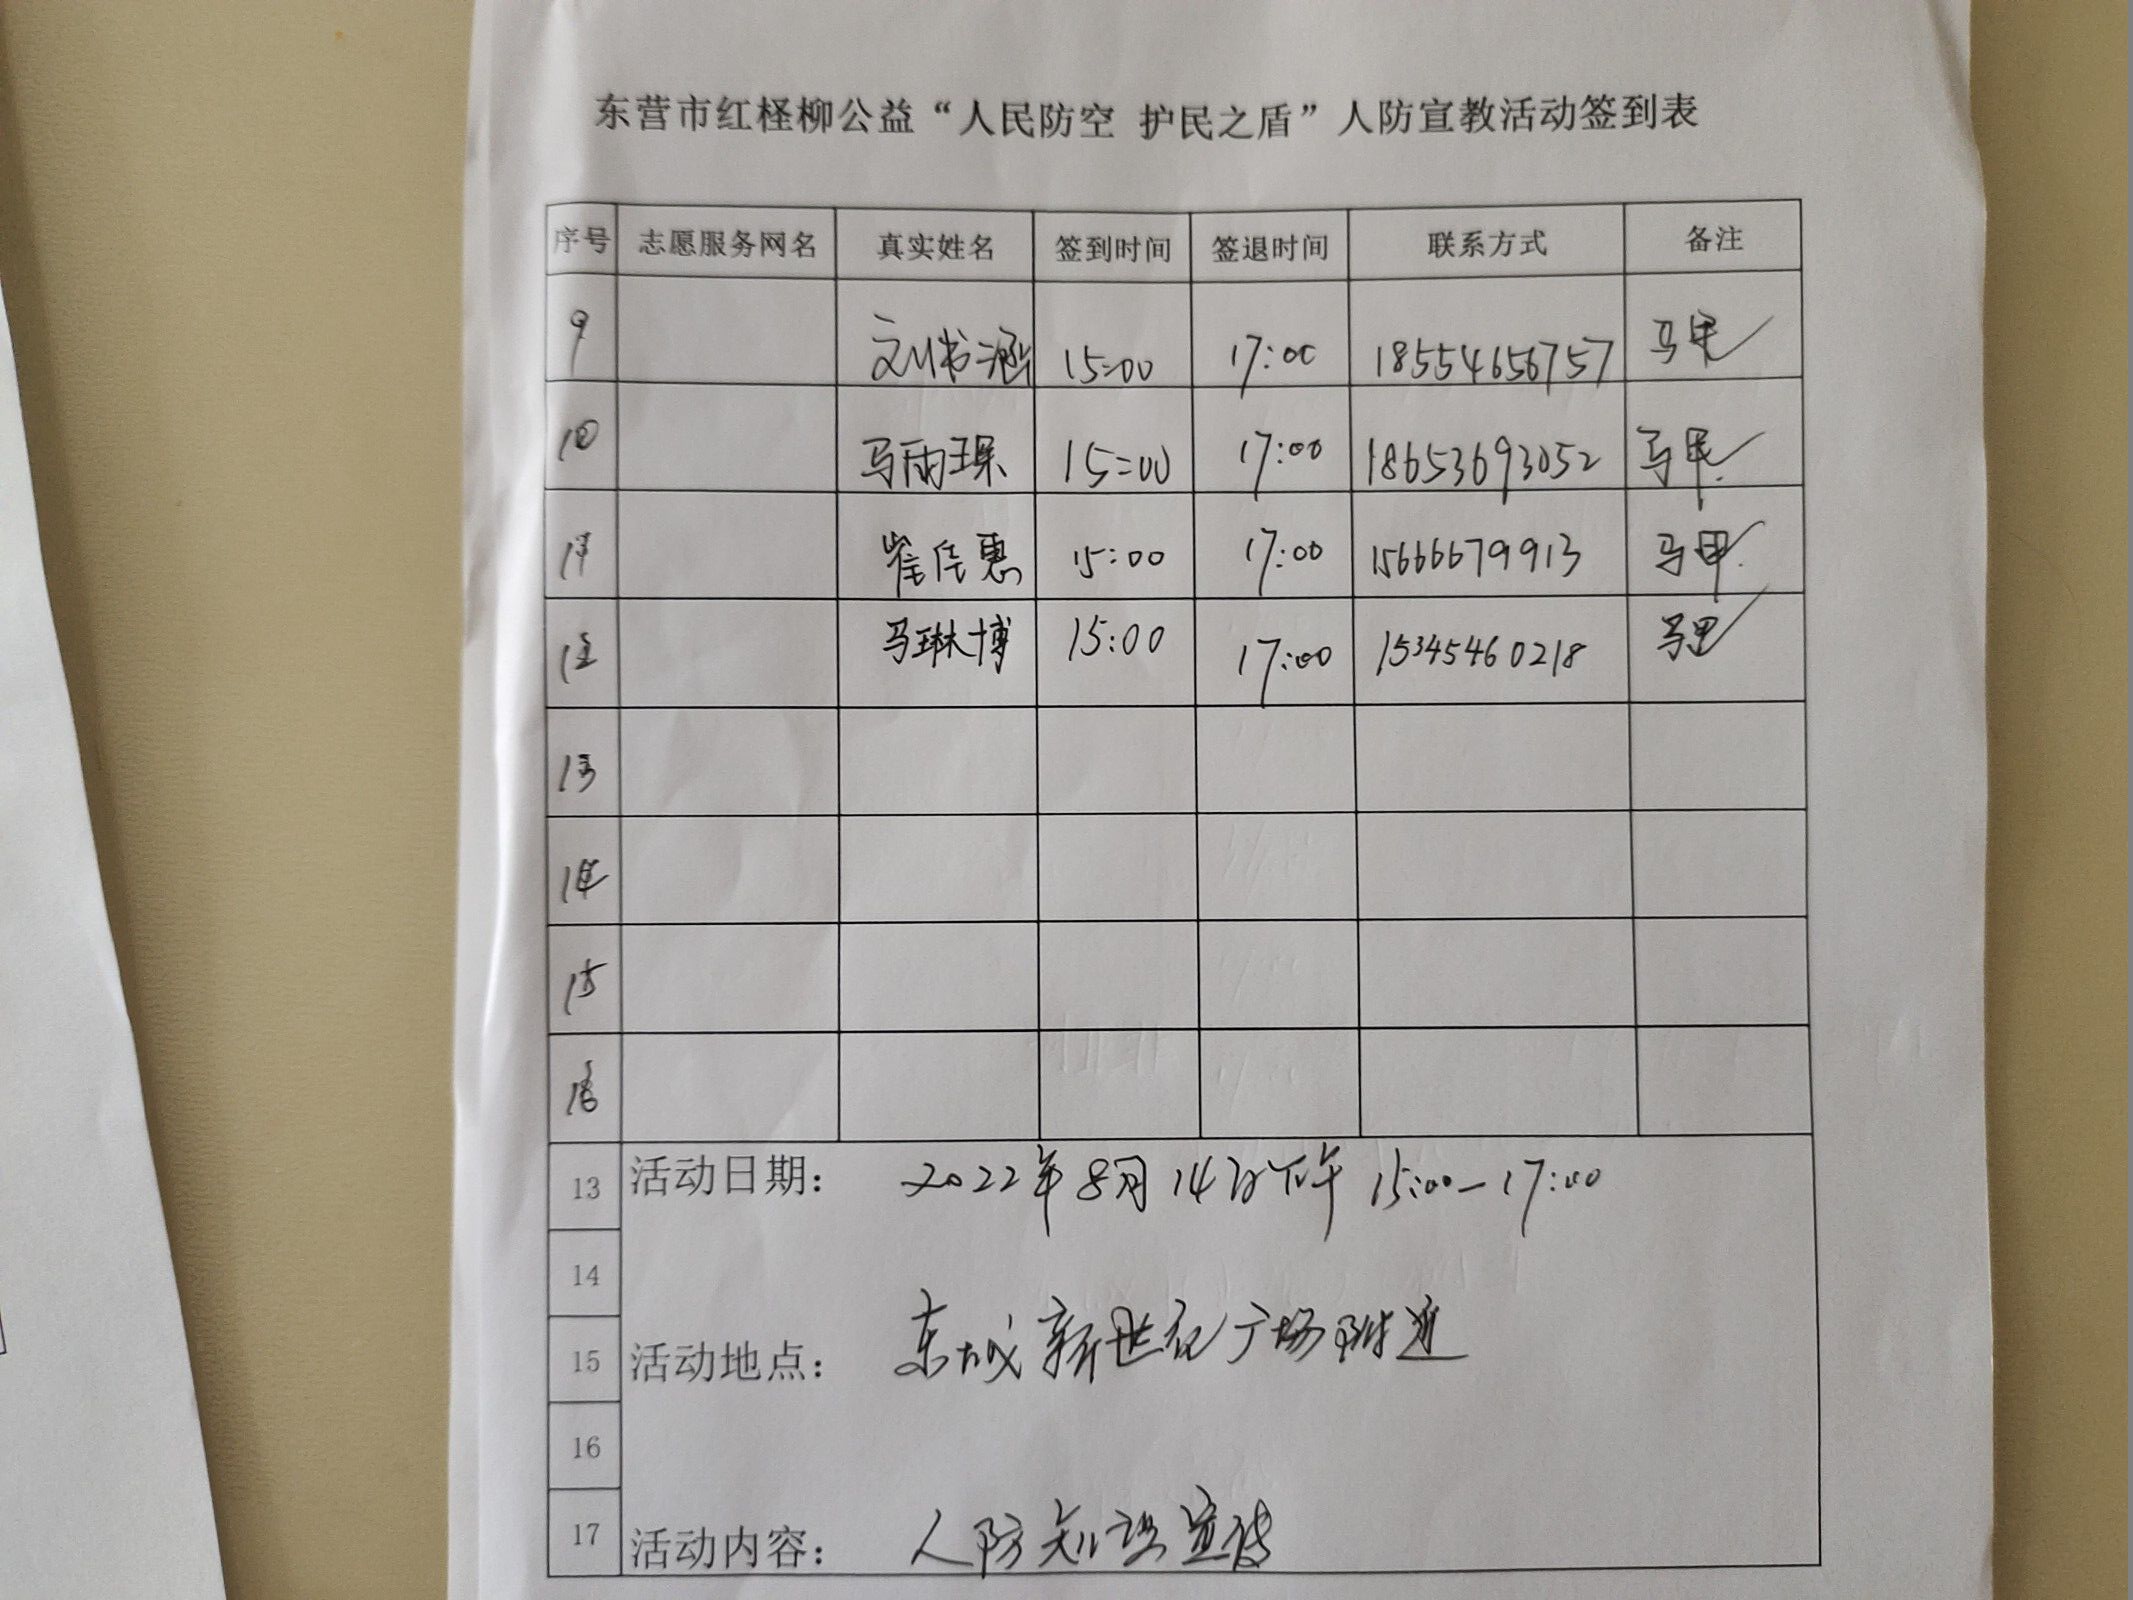 东营市红柽柳公益“人民防空 护民之盾”人防宣教活动签到表
序号 志愿服务网名 真实姓名 签到时间 签退时间 联系方式 备注
9 刘书涵 15:00 17:00 18554656757 马甲
10 马雨琛 15:00 17:00 18653693052 马甲
11 崔佳惠 15:00 17:00 15666679913 马甲
12 马琳博 15:00 17:00 15345460218 马甲
13
14
15
16
13 活动日期： 2022年8月14日下午 15:00-17:00
14
15 活动地点： 东城新世纪广场附近
16
17 活动内容： 人防知识宣传